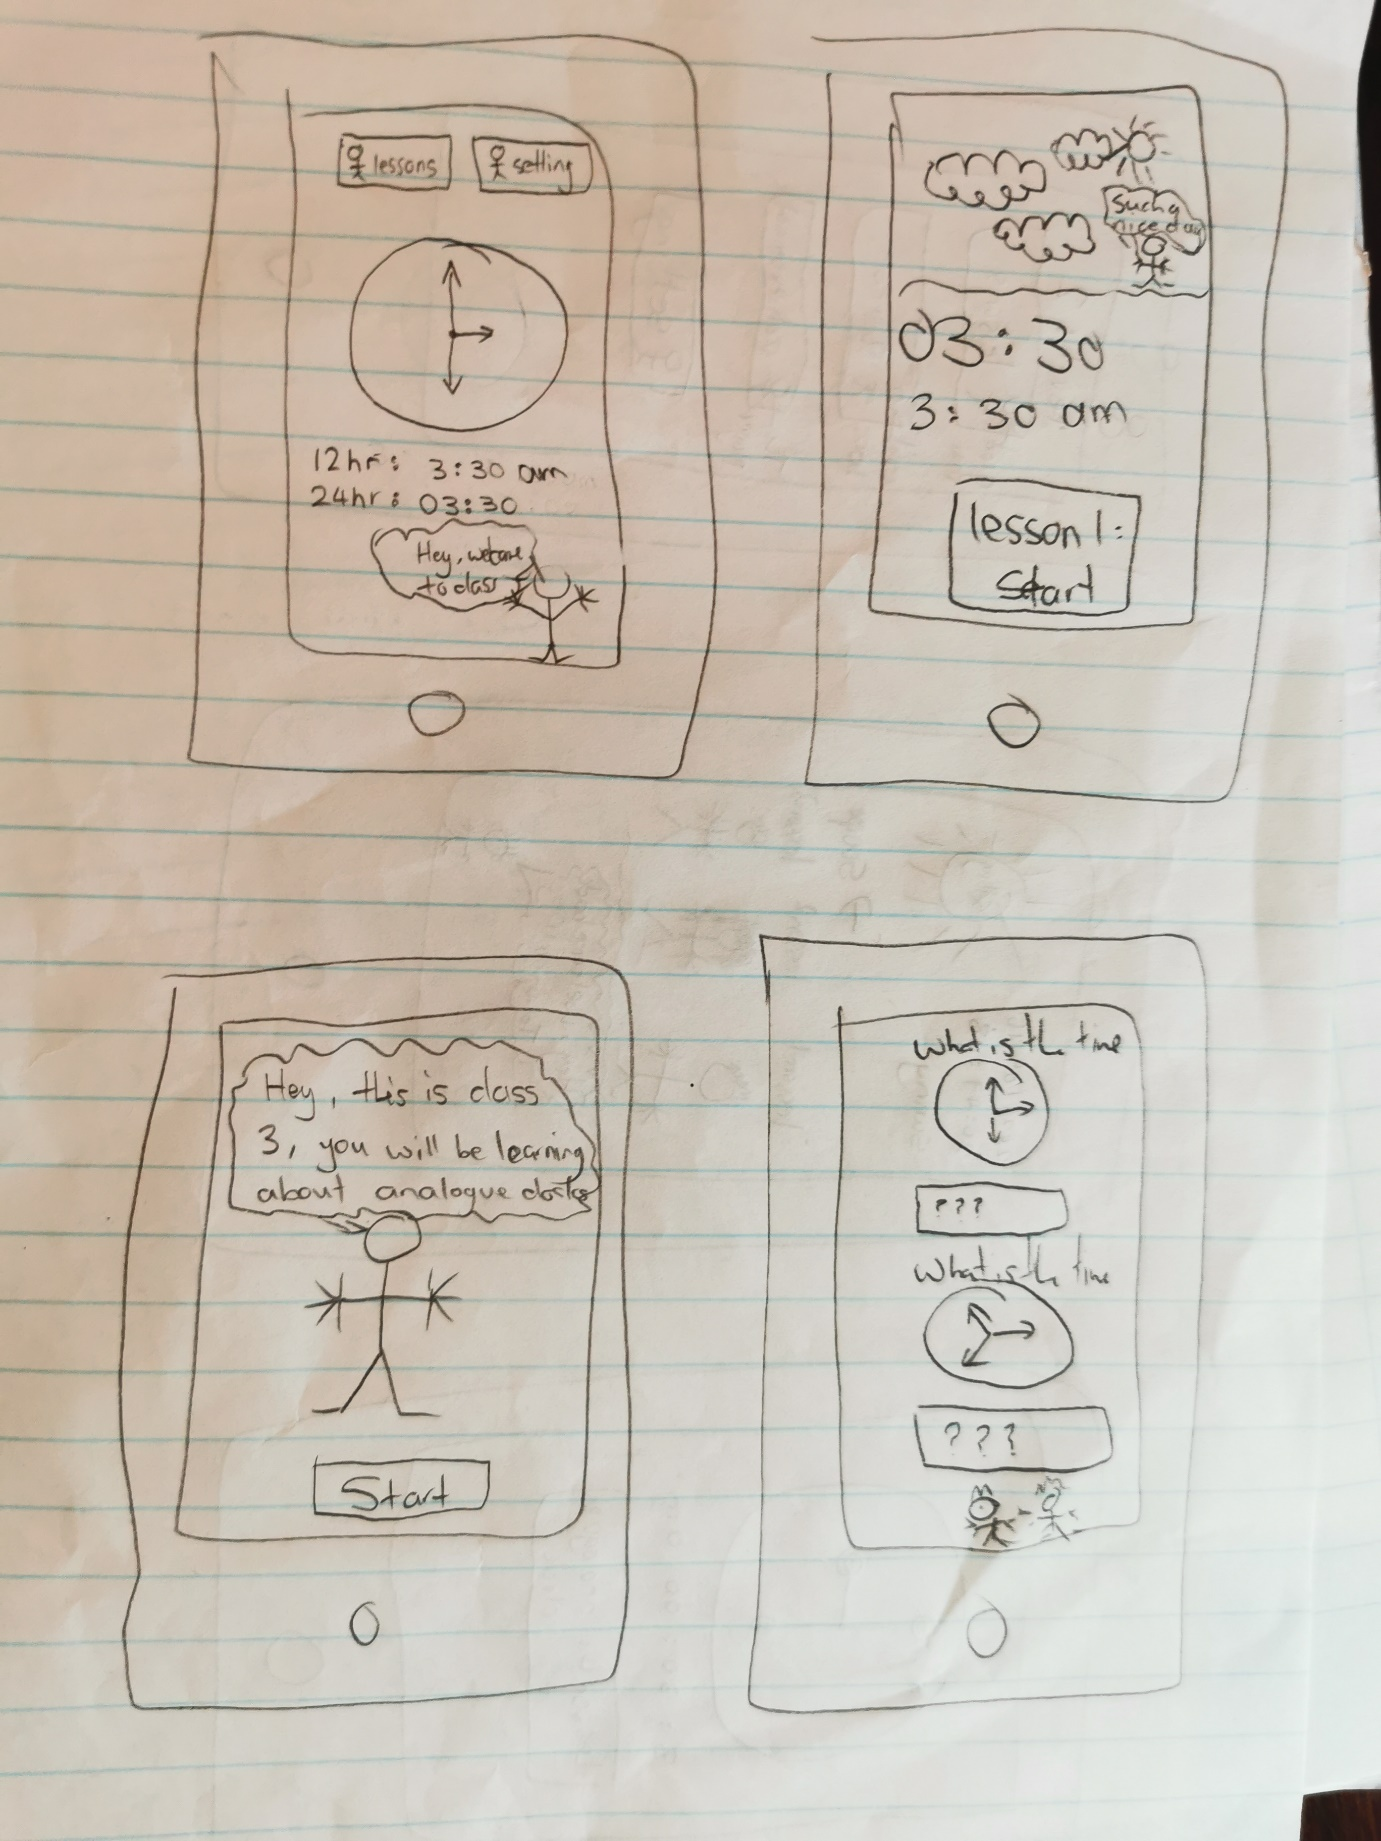 lessons
setting
12hr: 3:30 am
24hr: 03:30
Hey, welcome
to class
such a
nice day
03:30
3:30 am
lesson 1:
Start
Hey, this is class
3, you will be learning
about analogue clocks
Start
What is the time
???
What is the time
???